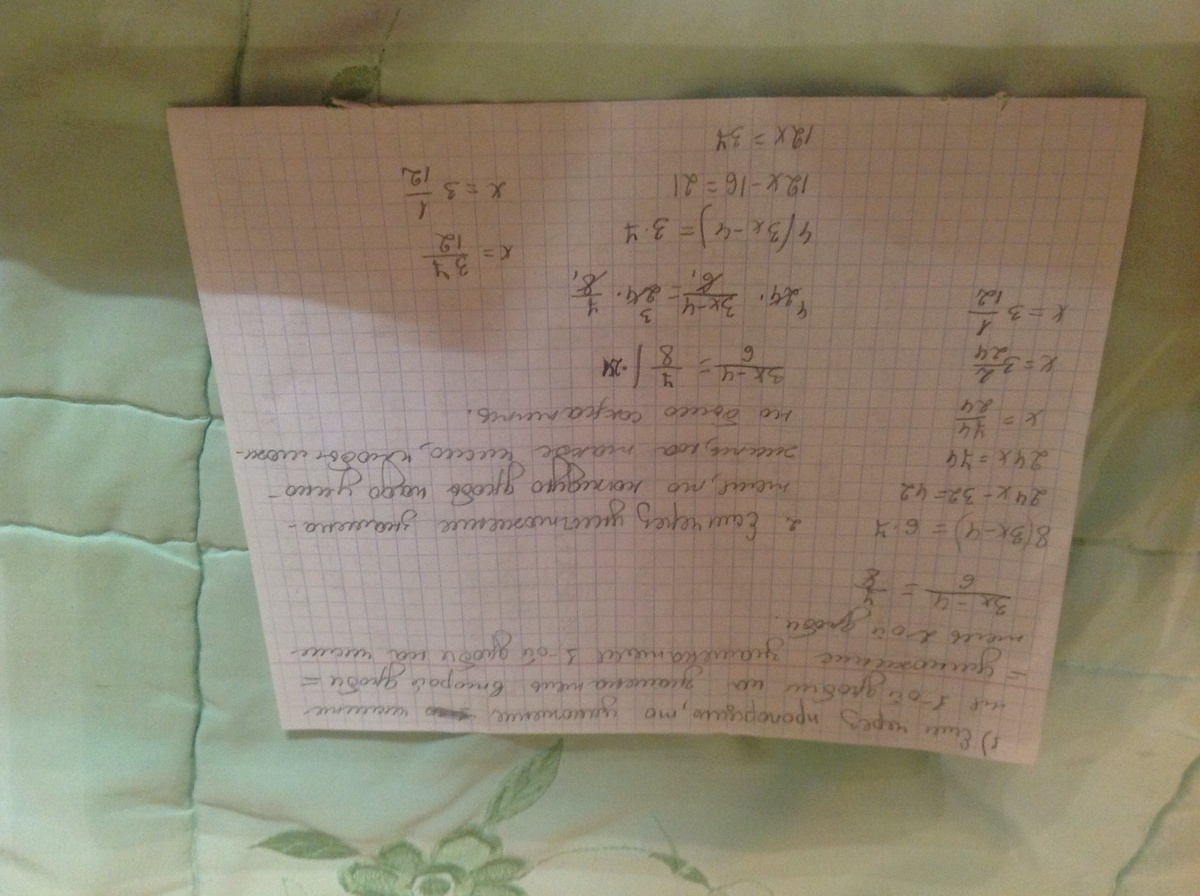 1) Если через пропорцию, то умножение числите-
ля 1-ой дроби на знаменатель второй дроби =
= умножение знаменателя 1-ой дроби на числи-
тель 2-ой дроби.
3x-4/6 = 7/8
8(3x-4) = 6·7
24x-32=42
24x=74
x = 74/24
x=3 2/24
x=3 1/12
2. Если через умножение знамена-
теля, то каждую дробь надо умно-
жить на такое число, чтобы мож-
но было сократить.
3x-4/6 = 7/8 | ·24
4 24 · 3x-4/6 1 = 3 24 · 7/8 1
4(3x-4) = 3·7
12x-16=21
12x=37
x = 37/12
x=3 1/12